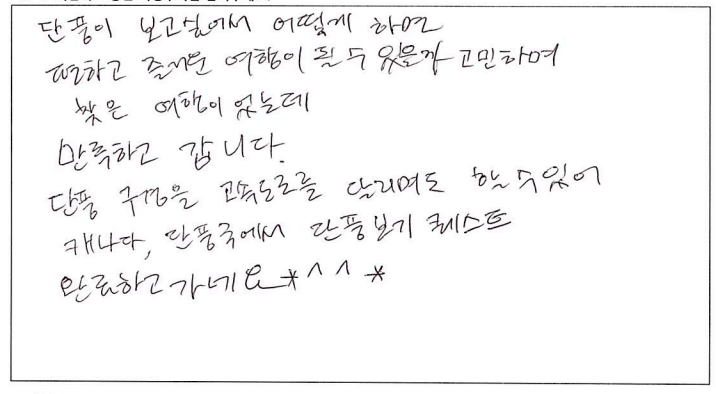 단풍이 보고싶어서 어떻게 하면
편하고 즐거운 여행이 될 수 있을까 고민하며
찾은 여행이었는데
만족하고 갑니다.
단풍 구경을 고속도로를 달리며도 할 수 있어
캐나다, 단풍국에서 단풍보기 퀘스트
완료하고 가네요 *^^*